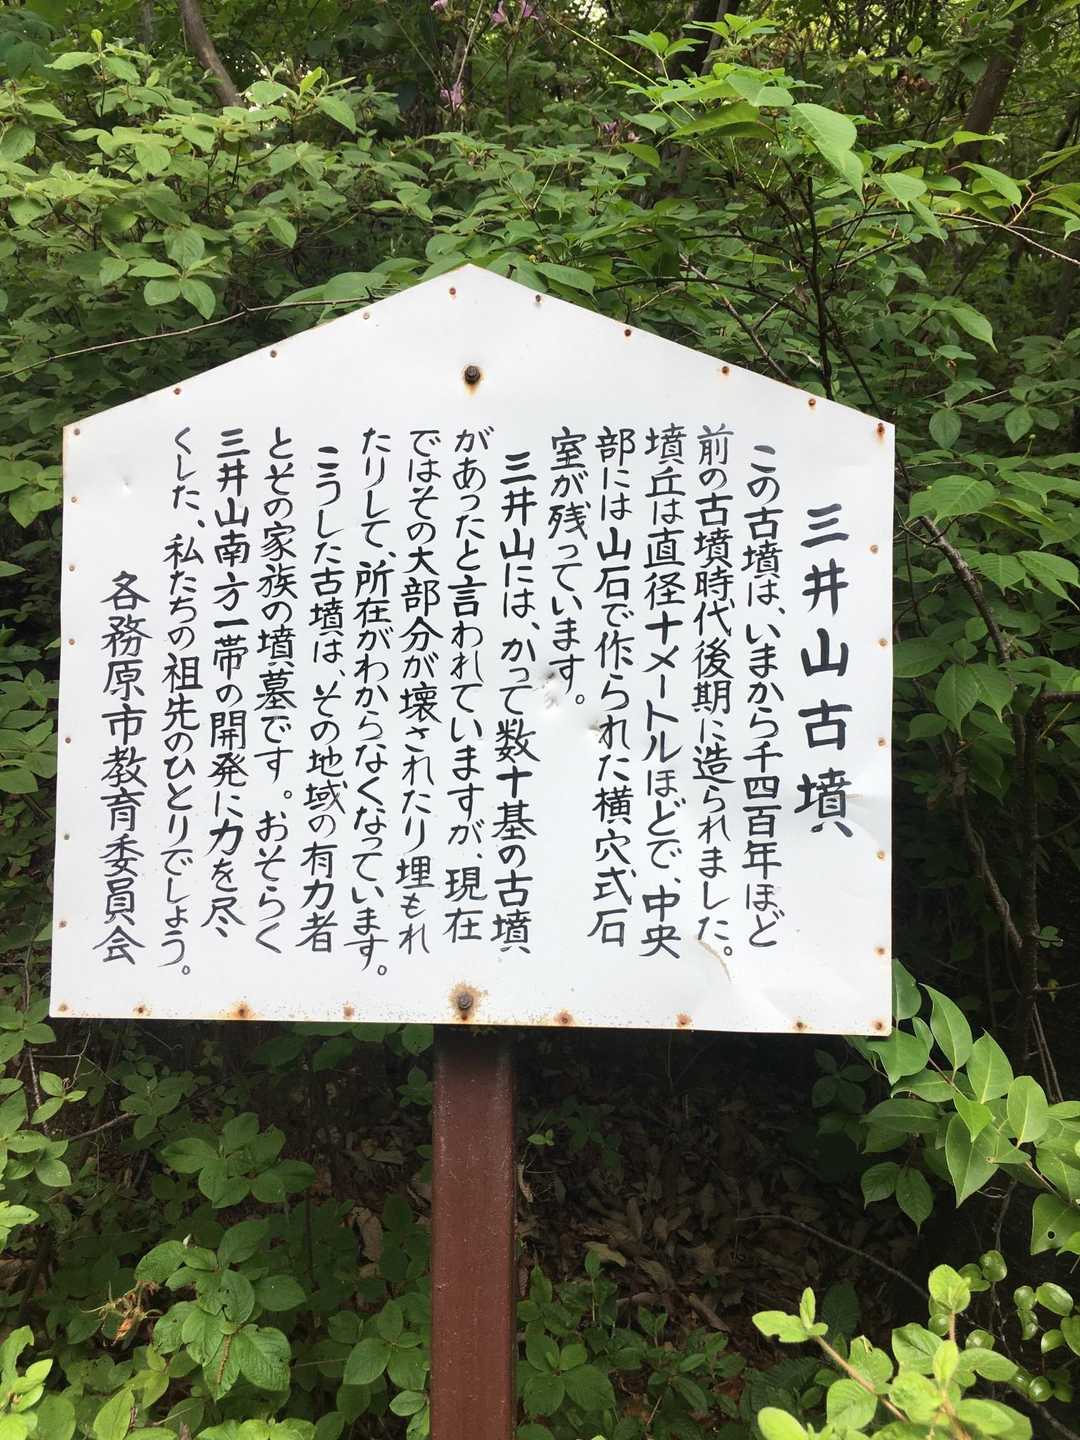 三井山古墳
この古墳は、いまから千四百年ほど
前の古墳時代後期に造られました。
墳丘は直径十メートルほどで、中央
部には山石で作られた横穴式石
室が残っています。
三井山には、かって数十基の古墳
があったと言われていますが、現在
ではその大部分が壊されたり埋もれ
たりして、所在がわからなくなっています。
こうした古墳は、その地域の有力者
とその家族の墳墓です。おそらく
三井山南方一帯の開発に力を尽
くした、私たちの祖先のひとりでしょう。
各務原市教育委員会